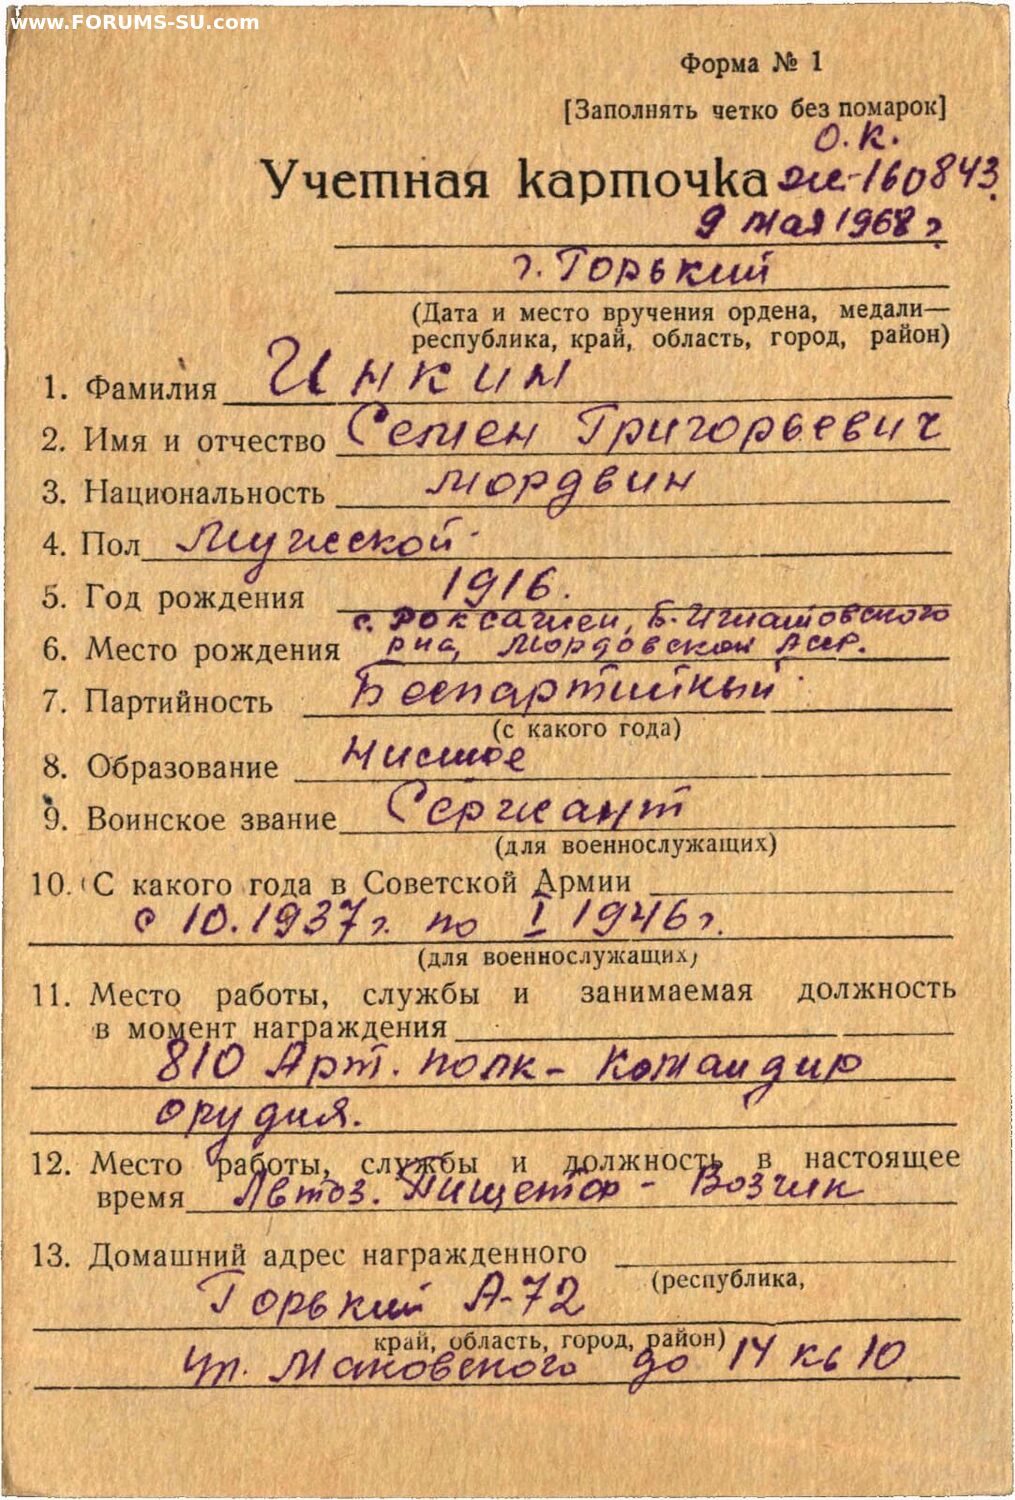 www.FORUMS-SU.com
Форма № 1
[Заполнять четко без помарок]
О.К.
Учетная карточка Ж-160843
9 мая 1968 г.
г. Горький
(Дата и место вручения ордена, медали—
республика, край, область, город, район)
1. Фамилия Инкин
2. Имя и отчество Семен Григорьевич
3. Национальность мордвин
4. Пол Мужской
5. Год рождения 1916.
с. Роксажен, Б-Игнатовского
6. Место рождения р-на, Мордовской Асср.
7. Партийность Беспартийный
(с какого года)
8. Образование Нисшое
9. Воинское звание Сержант
(для военнослужащих)
10. С какого года в Советской Армии
с 10.1937 г. по I 1946 г.
(для военнослужащих)
11. Место работы, службы и занимаемая должность
в момент награждения
810 Арт. полк - Командир
орудия.
12. Место работы, службы и должность в настоящее
время Автоз. - Возчик
13. Домашний адрес награжденного
(республика,
Горький А-72
край, область, город, район)
ул. Маковского до 14 кв 10